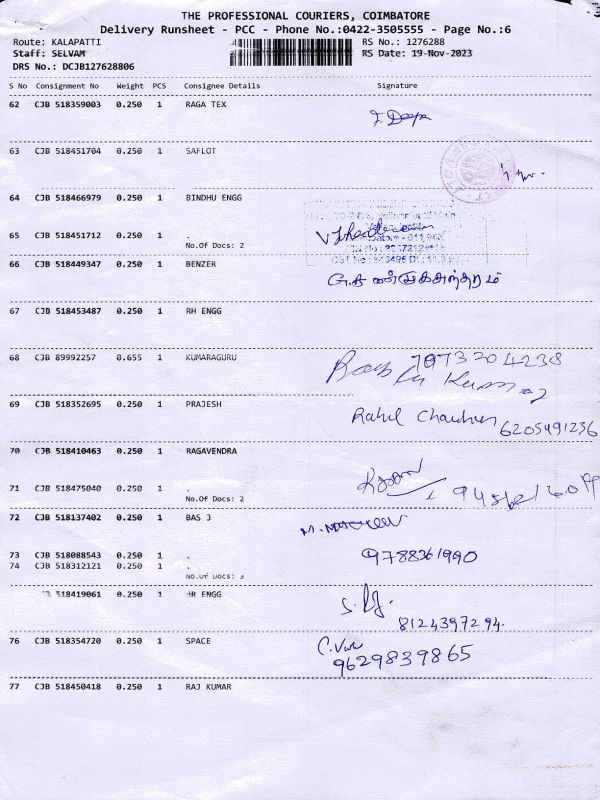 THE PROFESSIONAL COURIERS, COIMBATORE
Delivery Runsheet - PCC - Phone No.:0422-3505555 - Page No.:6
Route: KALAPATTI RS No.: 1276288
Staff: SELVAM RS Date: 19-Nov-2023
DRS No.: DCJB127628806
S No Consignment No Weight PCS Consignee Details Signature
62 CJB 518359003 0.250 1 RAGA TEX
63 CJB 518451704 0.250 1 SAFLOT
64 CJB 518466979 0.250 1 BINDHU ENGG
65 CJB 518451712 0.250 1 .
No.Of Docs: 2
66 CJB 518449347 0.250 1 BENZER
67 CJB 518453487 0.250 1 RH ENGG
68 CJB 89992257 0.655 1 KUMARAGURU
69 CJB 518352695 0.250 1 PRAJESH
Rahul 6205491236
70 CJB 518410463 0.250 1 RAGAVENDRA
71 CJB 518475040 0.250 1 .
No.Of Docs: 2
72 CJB 518137402 0.250 1 BAS J
73 CJB 518088543 0.250 1 . 9788361990
74 CJB 518312121 0.250 1 .
No.Of Docs: 3
518419061 0.250 1 AR ENGG
8124397294.
76 CJB 518354720 0.250 1 SPACE
9629839865
77 CJB 518450418 0.250 1 RAJ KUMAR